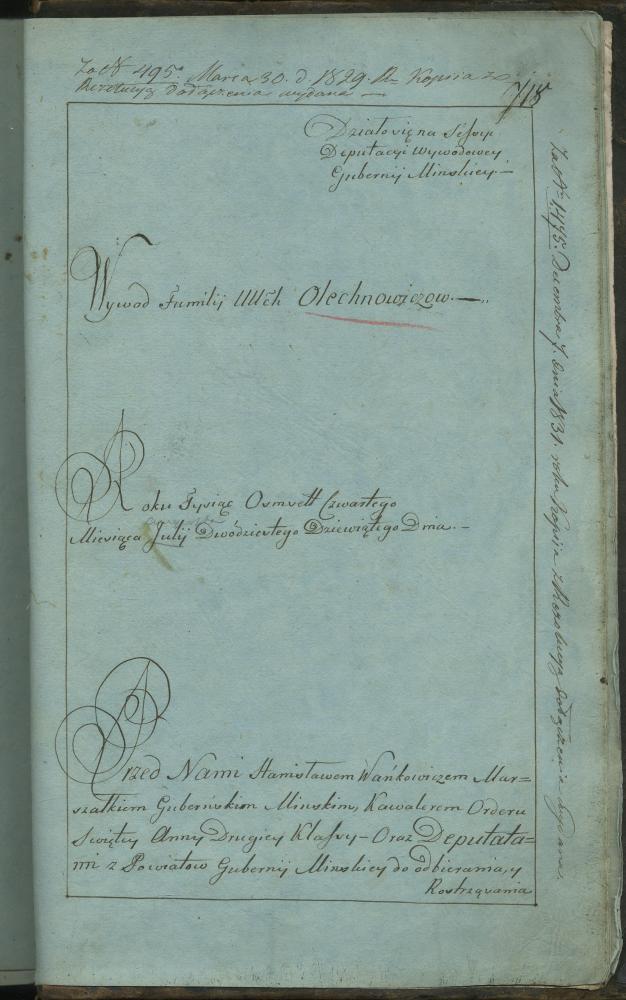 Za N 495. Marca 30. d. 1829. R Kopija z
Rezolucyą dołączenia wydana —
718
Działo się na Sessyi
Deputacyi Wywodowey
Gubernij Minskiey. —
Wywod Familij UUch Olechnowiczow. —
Roku Tysiąc Osmset Czwartego
Miesiąca Julij Dwódziestego Dziewiątego Dnia. —
Przed Nami Stanisławem Wańkowiczem Mar=
szałkiem Guberńskim Minskim, Kawalerem Orderu
Swiętey Anny Drugiey Klassy — Oraz Deputata=
mi z Powiatow Gubernij Minskiey do odbierania, y
Rostrząsania
Za N 1475. Decembra 7. dnia 1831. roku Kopija z Rezolucyą dołączenia wydana.